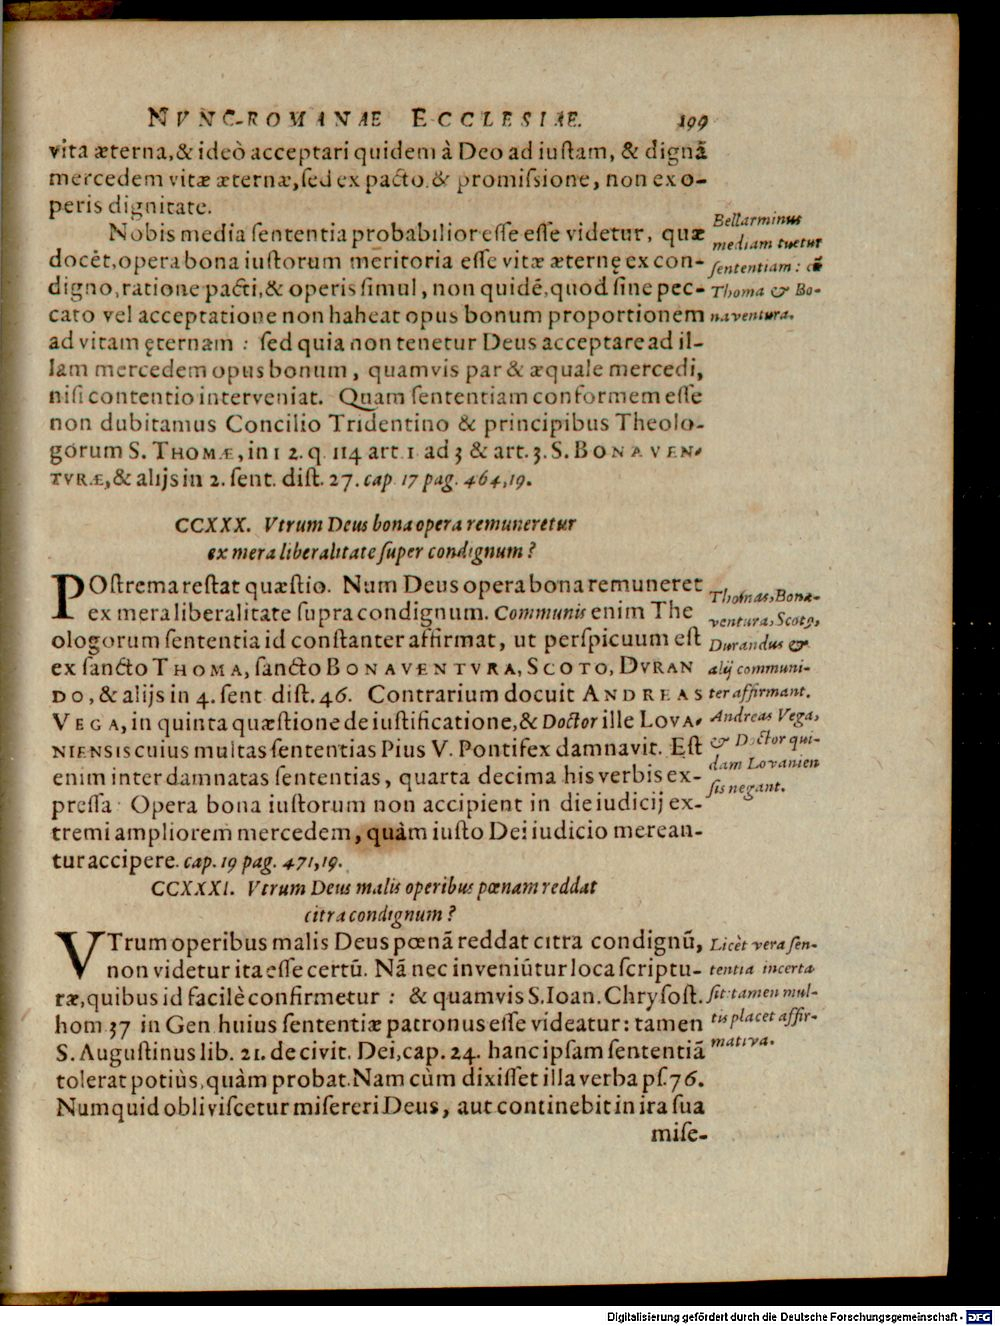 NVNC-ROMANÆ ECCLESIÆ. 199
vita æterna,& ideò acceptari quidem à Deo ad iustam, & dignã
mercedem vitæ æternæ, sed ex pacto & promissione, non ex o-
peris dignitate.
Nobis media sententia probabilior esse esse videtur, quæ
docēt, opera bona iustorum meritoria esse vitæ æternę ex con-
digno, ratione pacti, & operis simul, non quidē, quod sine pec-
cato vel acceptatione non habeat opus bonum proportionem
ad vitam ęternam : sed quia non tenetur Deus acceptare ad il-
lam mercedem opus bonum, quamvis par & æquale mercedi,
nisi contentio interveniat. Quam sententiam conformem esse
non dubitamus Concilio Tridentino & principibus Theolo-
gorum S. THOMÆ, in 1 2. q. 114 art. 1 ad 3 & art. 3. S. BONAVEN-
TVRÆ, & alijs in 2. sent. dist. 27. cap 17 pag. 464,19.
Bellarminus
mediam tuetur
sententiam : cū
Thoma & Bo-
naventura.
CCXXX. Vtrum Deus bona opera remuneretur
ex mera liberalitate super condignum?
POstrema restat quæstio. Num Deus opera bona remuneret
ex mera liberalitate supra condignum. Communis enim The
ologorum sententia id constanter affirmat, ut perspicuum est
ex sancto THOMA, sancto BONAVENTVRA, SCOTO, DVRAN
DO, & alijs in 4. sent dist. 46. Contrarium docuit ANDREAS
VEGA, in quinta quæstione de iustificatione, & Doctor ille LOVA-
NIENSIS cuius multas sententias Pius V. Pontifex damnavit. Est
enim inter damnatas sententias, quarta decima his verbis ex-
pressa Opera bona iustorum non accipient in die iudicij ex-
tremi ampliorem mercedem, quàm iusto Dei iudicio merean-
tur accipere. cap. 19 pag. 471,19.
Thomas, Bona-
ventura, Scoto,
Durandus &
alij communi-
ter affirmant.
Andreas Vega,
& Doctor qui-
dam Lovanien
sis negant.
CCXXXI. Vtrum Deus malis operibus pœnam reddat
citra condignum?
VTrum operibus malis Deus pœnã reddat citra condignũ,
non videtur ita esse certũ. Nã nec inveniũtur loca scriptu-
ræ, quibus id facilè confirmetur : & quamvis S. Ioan. Chrysost.
hom 37 in Gen huius sententiæ patronus esse videatur: tamen
S. Augustinus lib. 21. de civit. Dei, cap. 24. hanc ipsam sententiã
tolerat potiùs, quàm probat. Nam cùm dixisset illa verba ps. 76.
Numquid obliviscetur misereri Deus, aut continebit in ira sua
mise-
Licèt vera sen-
tentia incerta
sit: tamen mul-
tis placet affir-
mativa.
Digitalisierung gefördert durch die Deutsche Forschungsgemeinschaft - DFG